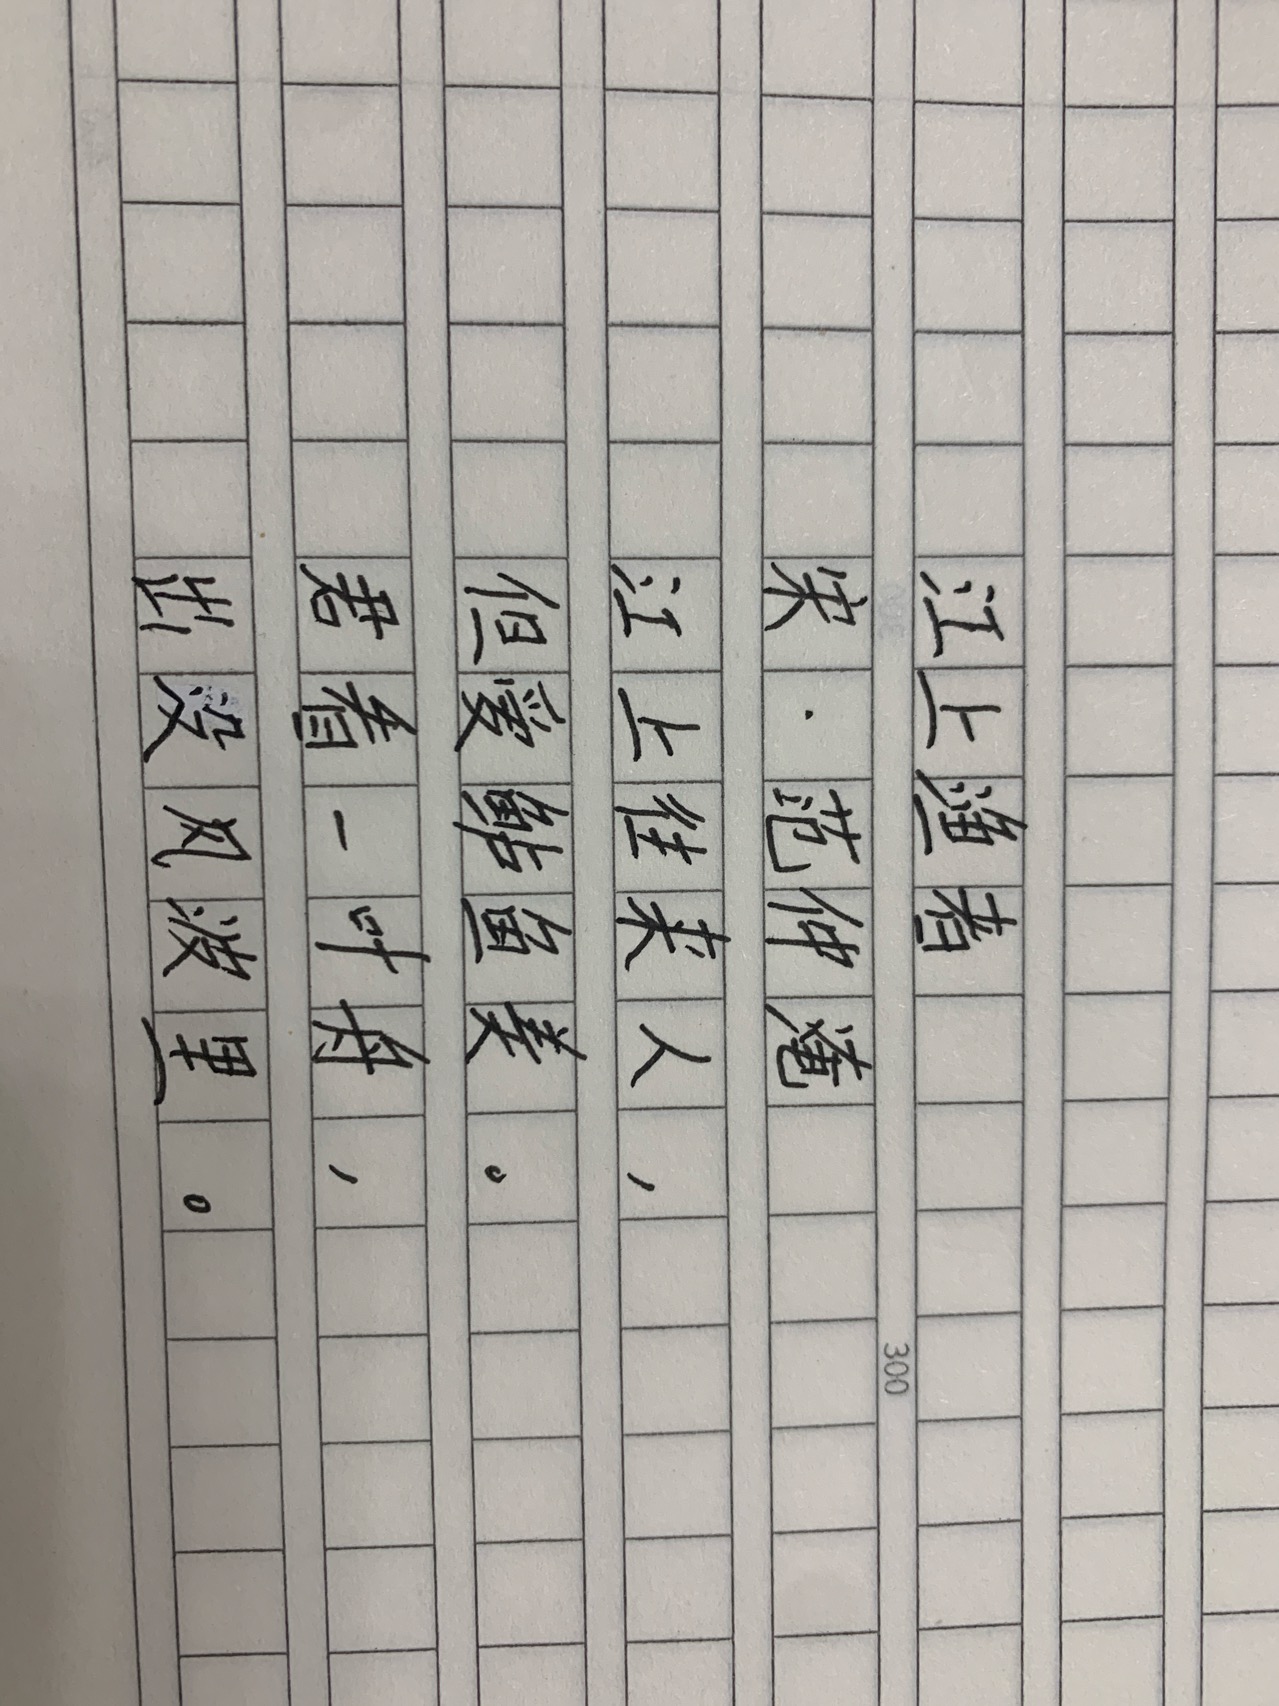 江上渔者
300
宋·范仲淹
江上往来人，
但爱鲈鱼美。
君看一叶舟，
出没风波里。